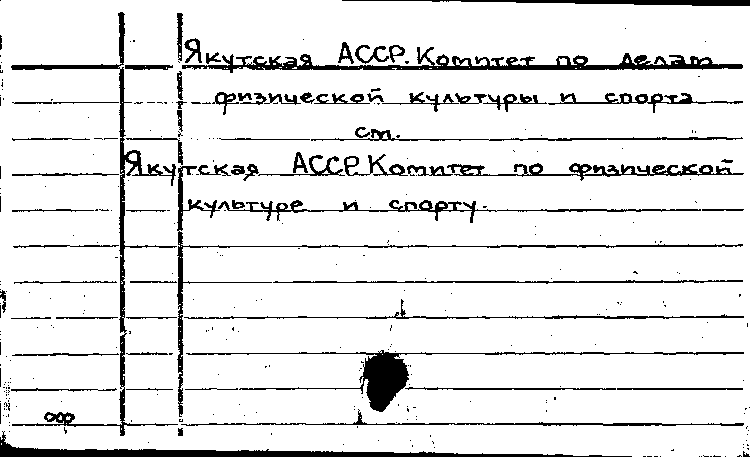 Якутская АССР. Комитет по делам
физической культуры и спорта
см.
Якутская АССР. Комитет по физической
культуре и спорту.